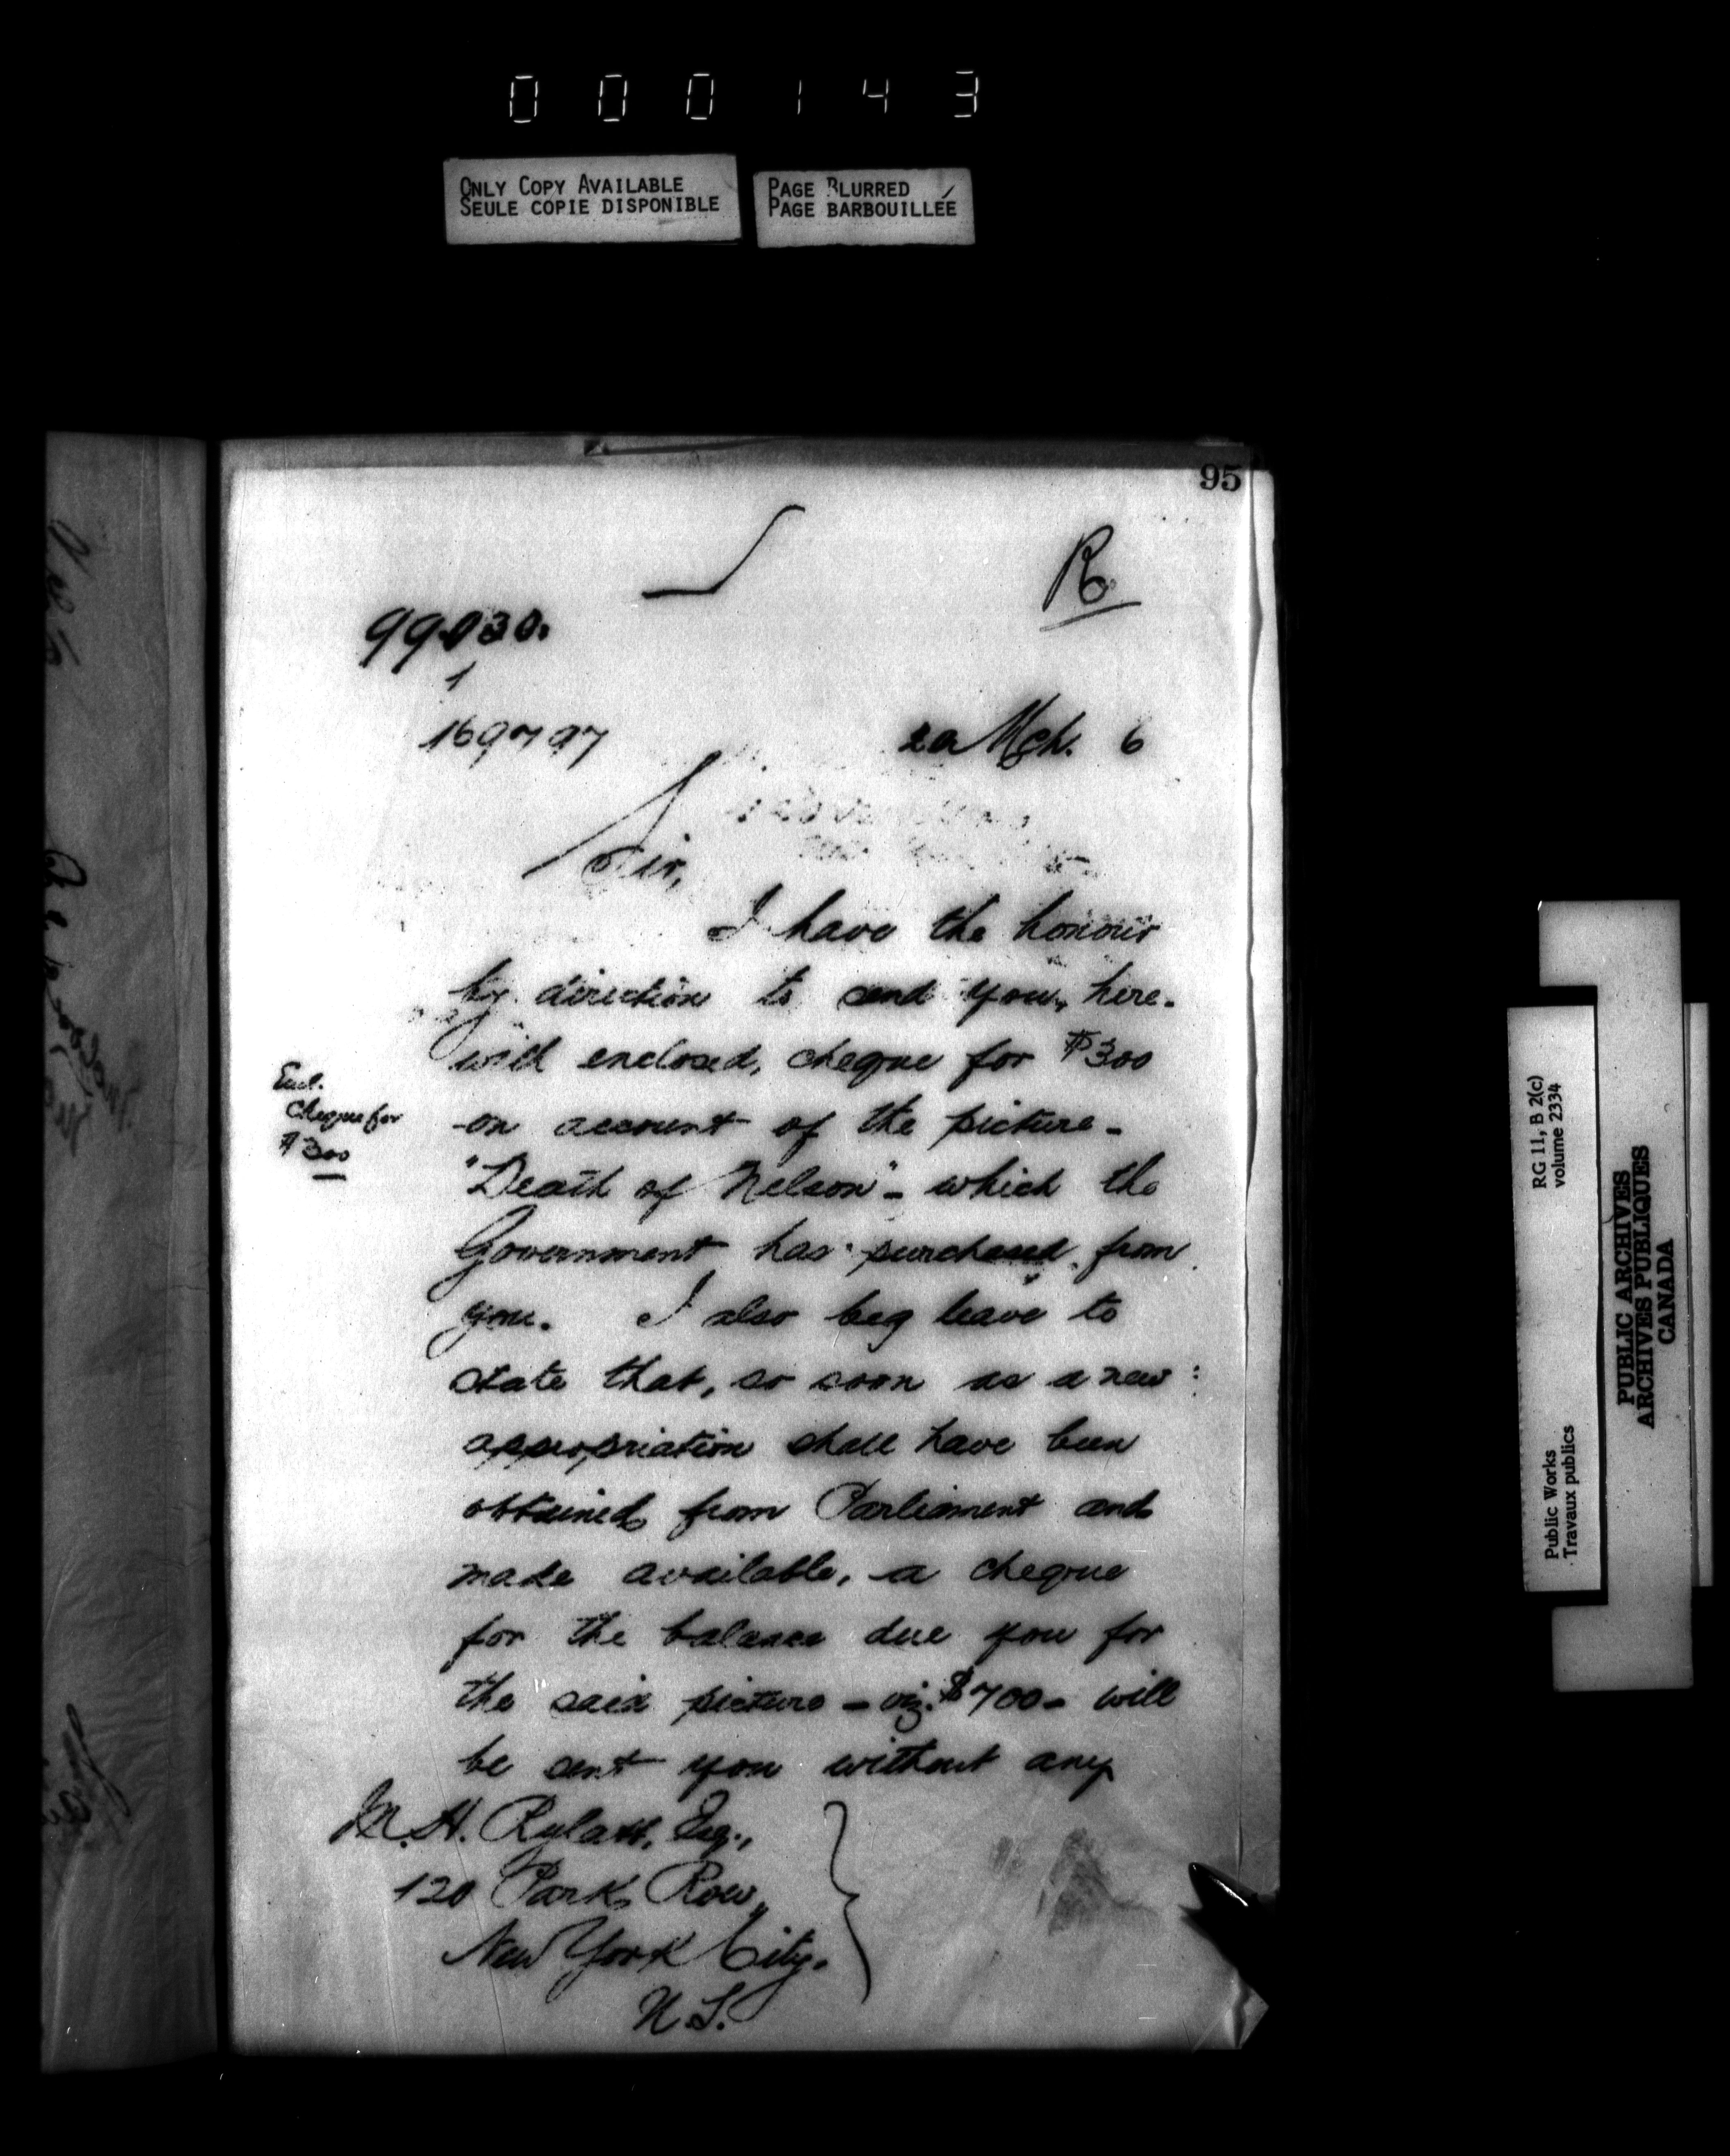 000143
ONLY COPY AVAILABLE
SEULE COPIE DISPONIBLE
PAGE BLURRED
PAGE BARBOUILLÉE
95
R
99030.
1
169797
20 Mch. 6
Sir,
I have the honour
by direction to send you, here-
with enclosed, cheque for $300
on account of the picture -
"Death of Nelson" - which the
Government has purchased from
you. I also beg leave to
state that, so soon as a new
appropriation shall have been
obtained from Parliament and
made available, a cheque
for the balance due you for
the said picture - viz. $700 - will
be sent you without any
Encl.
Cheque for
$300
M. H. Rylatt, Esq.,
120 Park Row,
New York City.
U.S.
RG 11, B 2(c)
volume 2334
Public Works
Travaux publics
PUBLIC ARCHIVES
ARCHIVES PUBLIQUES
CANADA